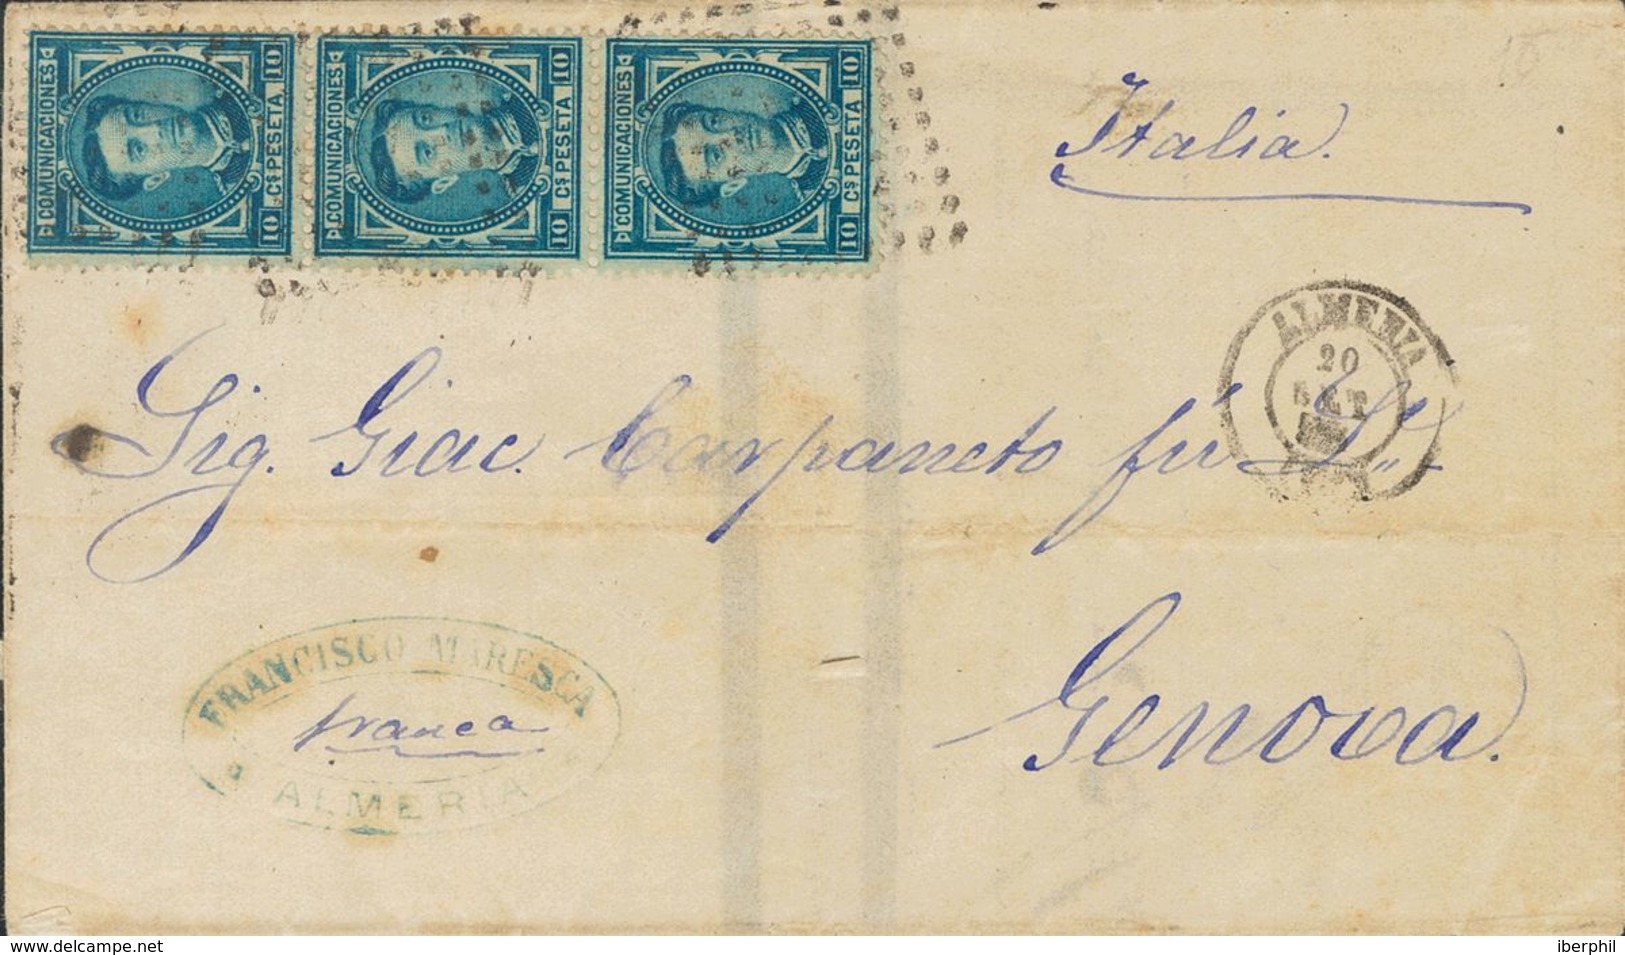 COMUNICACIONES
10 Cs PESETA 10
COMUNICACIONES
10 Cs PESETA 10
COMUNICACIONES
10 Cs PESETA 10
Italia.
ALMERIA
20
Sig. Giac. Carpaneto fú
Genova.
FRANCISCO MARESCA
franca
ALMERIA
www.delcampe.net
iberphil